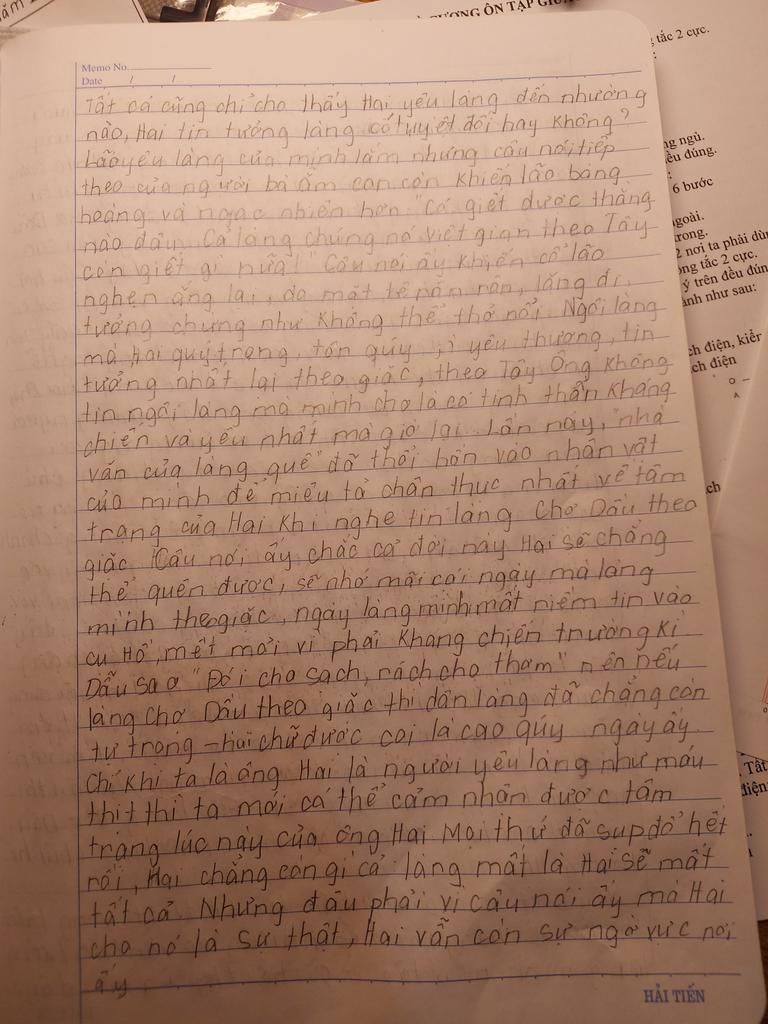 ƯƠNG ÔN TẬP GIỮA
Memo No.
Date / /
Tất cả cũng chỉ cho thấy Hai yêu làng đến nhường
nào, Hai tin tưởng làng có tuyệt đối hay không?
Lão yêu làng của mình lắm nhưng câu nói tiếp
theo của người bà ẵm con còn khiến lão bàng
hoàng và ngạc nhiên hơn "Có giết được thằng
nào đâu. Cả làng chúng nó Việt gian theo Tây
còn giết gì nữa!" Câu nói ấy khiến cổ lão
nghẹn ắng lại, da mặt tê rân rân, lặng đi,
tưởng chừng như không thể thở nổi. Ngôi làng
mà Hai quý trọng, tôn quý, yêu thương, tin
tưởng nhất lại theo giặc, theo Tây Ông không
tin ngôi làng mà mình cho là có tinh thần kháng
chiến và yêu nhất mà giờ lại. Lần này, "nhà
văn của làng quê" đã thổi hồn vào nhân vật
của mình để miêu tả chân thực nhất về tâm
trạng của Hai khi nghe tin làng Chợ Dầu theo
giặc Câu nói ấy chắc cả đời này Hai sẽ chẳng
thể quên được, sẽ nhớ mãi cái ngày mà làng
mình theo giặc, ngày làng mình mất niềm tin vào
cụ Hồ, mệt mỏi vì phải kháng chiến trường kì
Dẫu sao "Đói cho sạch, rách cho thơm" nên nếu
làng Chợ Dầu theo giặc thì dân làng đã chẳng còn
tự trọng - hai chữ được coi là cao quý ngày ấy
Chỉ khi ta là ông Hai là người yêu làng như máu
thịt thì ta mới có thể cảm nhận được tâm
trạng lúc này của ông Hai Mọi thứ đã sụp đổ hết
rồi, Hai chẳng còn gì cả làng mất là Hai sẽ mất
tất cả. Nhưng đâu phải vì câu nói ấy mà Hai
cho nó là sự thật, Hai vẫn còn sự ngờ vực nơi
ấy
HẢI TIẾN
tắc 2 cực.
ng ngủ.
ều đúng.
6 bước
goài.
rong.
2 nơi ta phải dùn
ông tắc 2 cực.
ý trên đều đún
ành như sau:
ch điện, kiểr
ch điện
ch
. Tất
điện